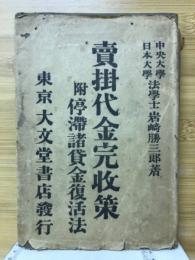 中央大學
日本大學
法學士 岩崎勝三郎著
賣掛代金完收策
附 停滯諸貸金復活法
東京大文堂書店發行